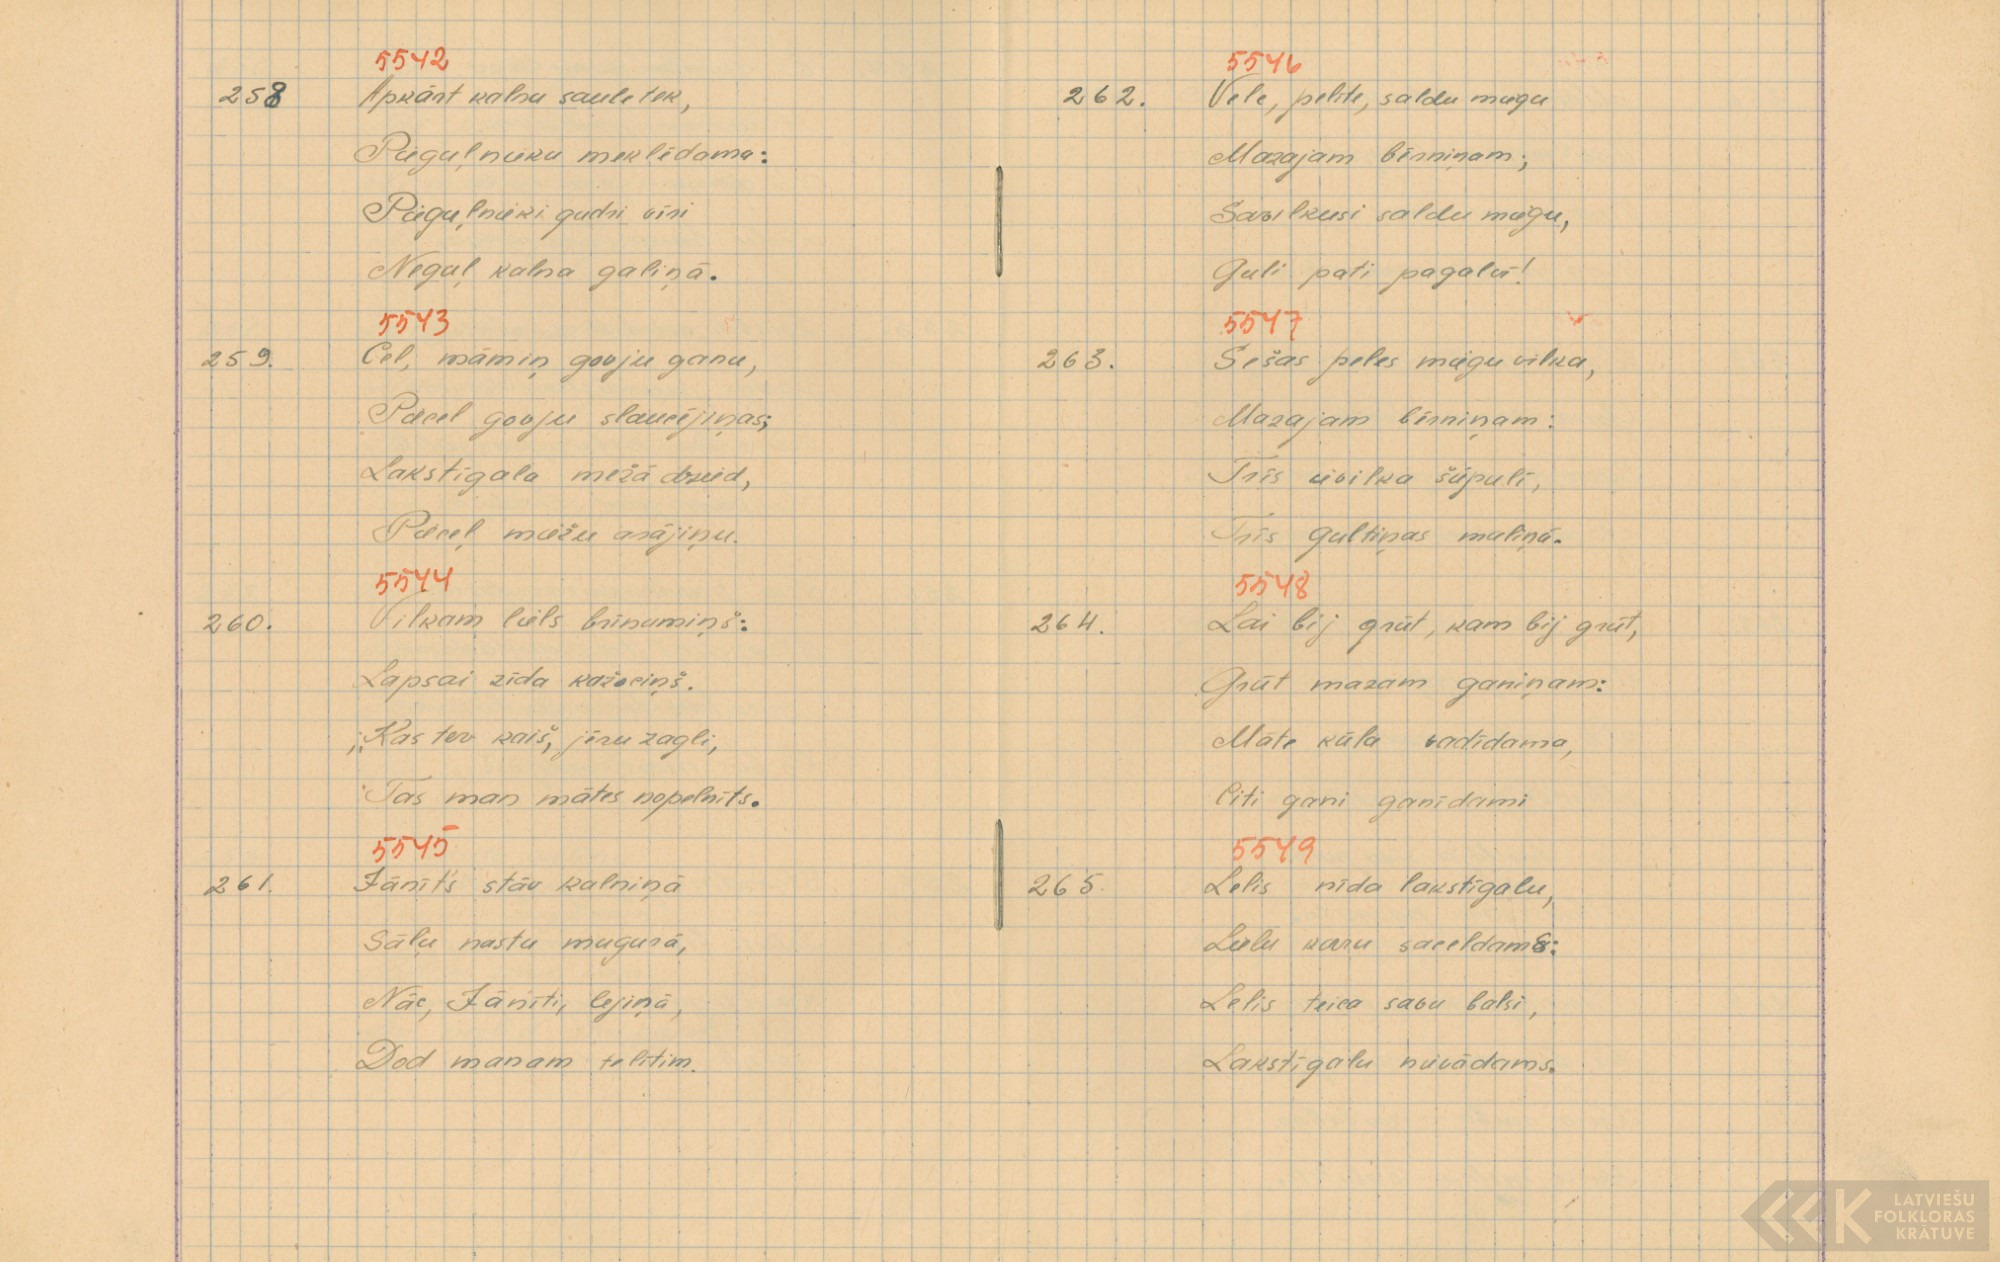 5542
258 Apkārt kalnu saule tek,
Pieguļnieku meklēdama:
Pieguļnieki gudri vīri
Neguļ kalna galiņā.
5543
259. Cel, māmiņ govju ganu,
Pacel govju slaucējiņas;
Lakstīgala mežā dzied,
Paceļ miežu arājiņu.
5544
260. Vilkam liels brīnumiņš:
Lapsai zīda kažociņš.
,,Kas tev kaiš, jēru zagli,
Tas man mātes nopelnīts.
5545
261. Jānīt's stāv kalniņā
Sāļu nastu mugurā,
Nāc, Jānīti, lejiņā,
Dod manam telītim.
5546
262. Velc, pelīte, saldu miegu
Mazajam bērniņam;
Savilkusi saldu miegu,
Guli pati pagalvī!
5547
263. Sešas peles miegu vilka,
Mazajam bērniņam:
Trīs ievilka šūpulī,
Trīs gultiņas maliņā.
5548
264. Lai bij grūt, kam bij grūt,
Grūt mazam ganiņam:
Māte kūla vadīdama,
Citi gani ganīdami
5549
265. Lelis nīda lakstīgalu,
Lielu karu saceldams:
Lelis teica savu balsi,
Lakstīgalu nievādams.
LATVIEŠU
FOLKLORAS
KRĀTUVE